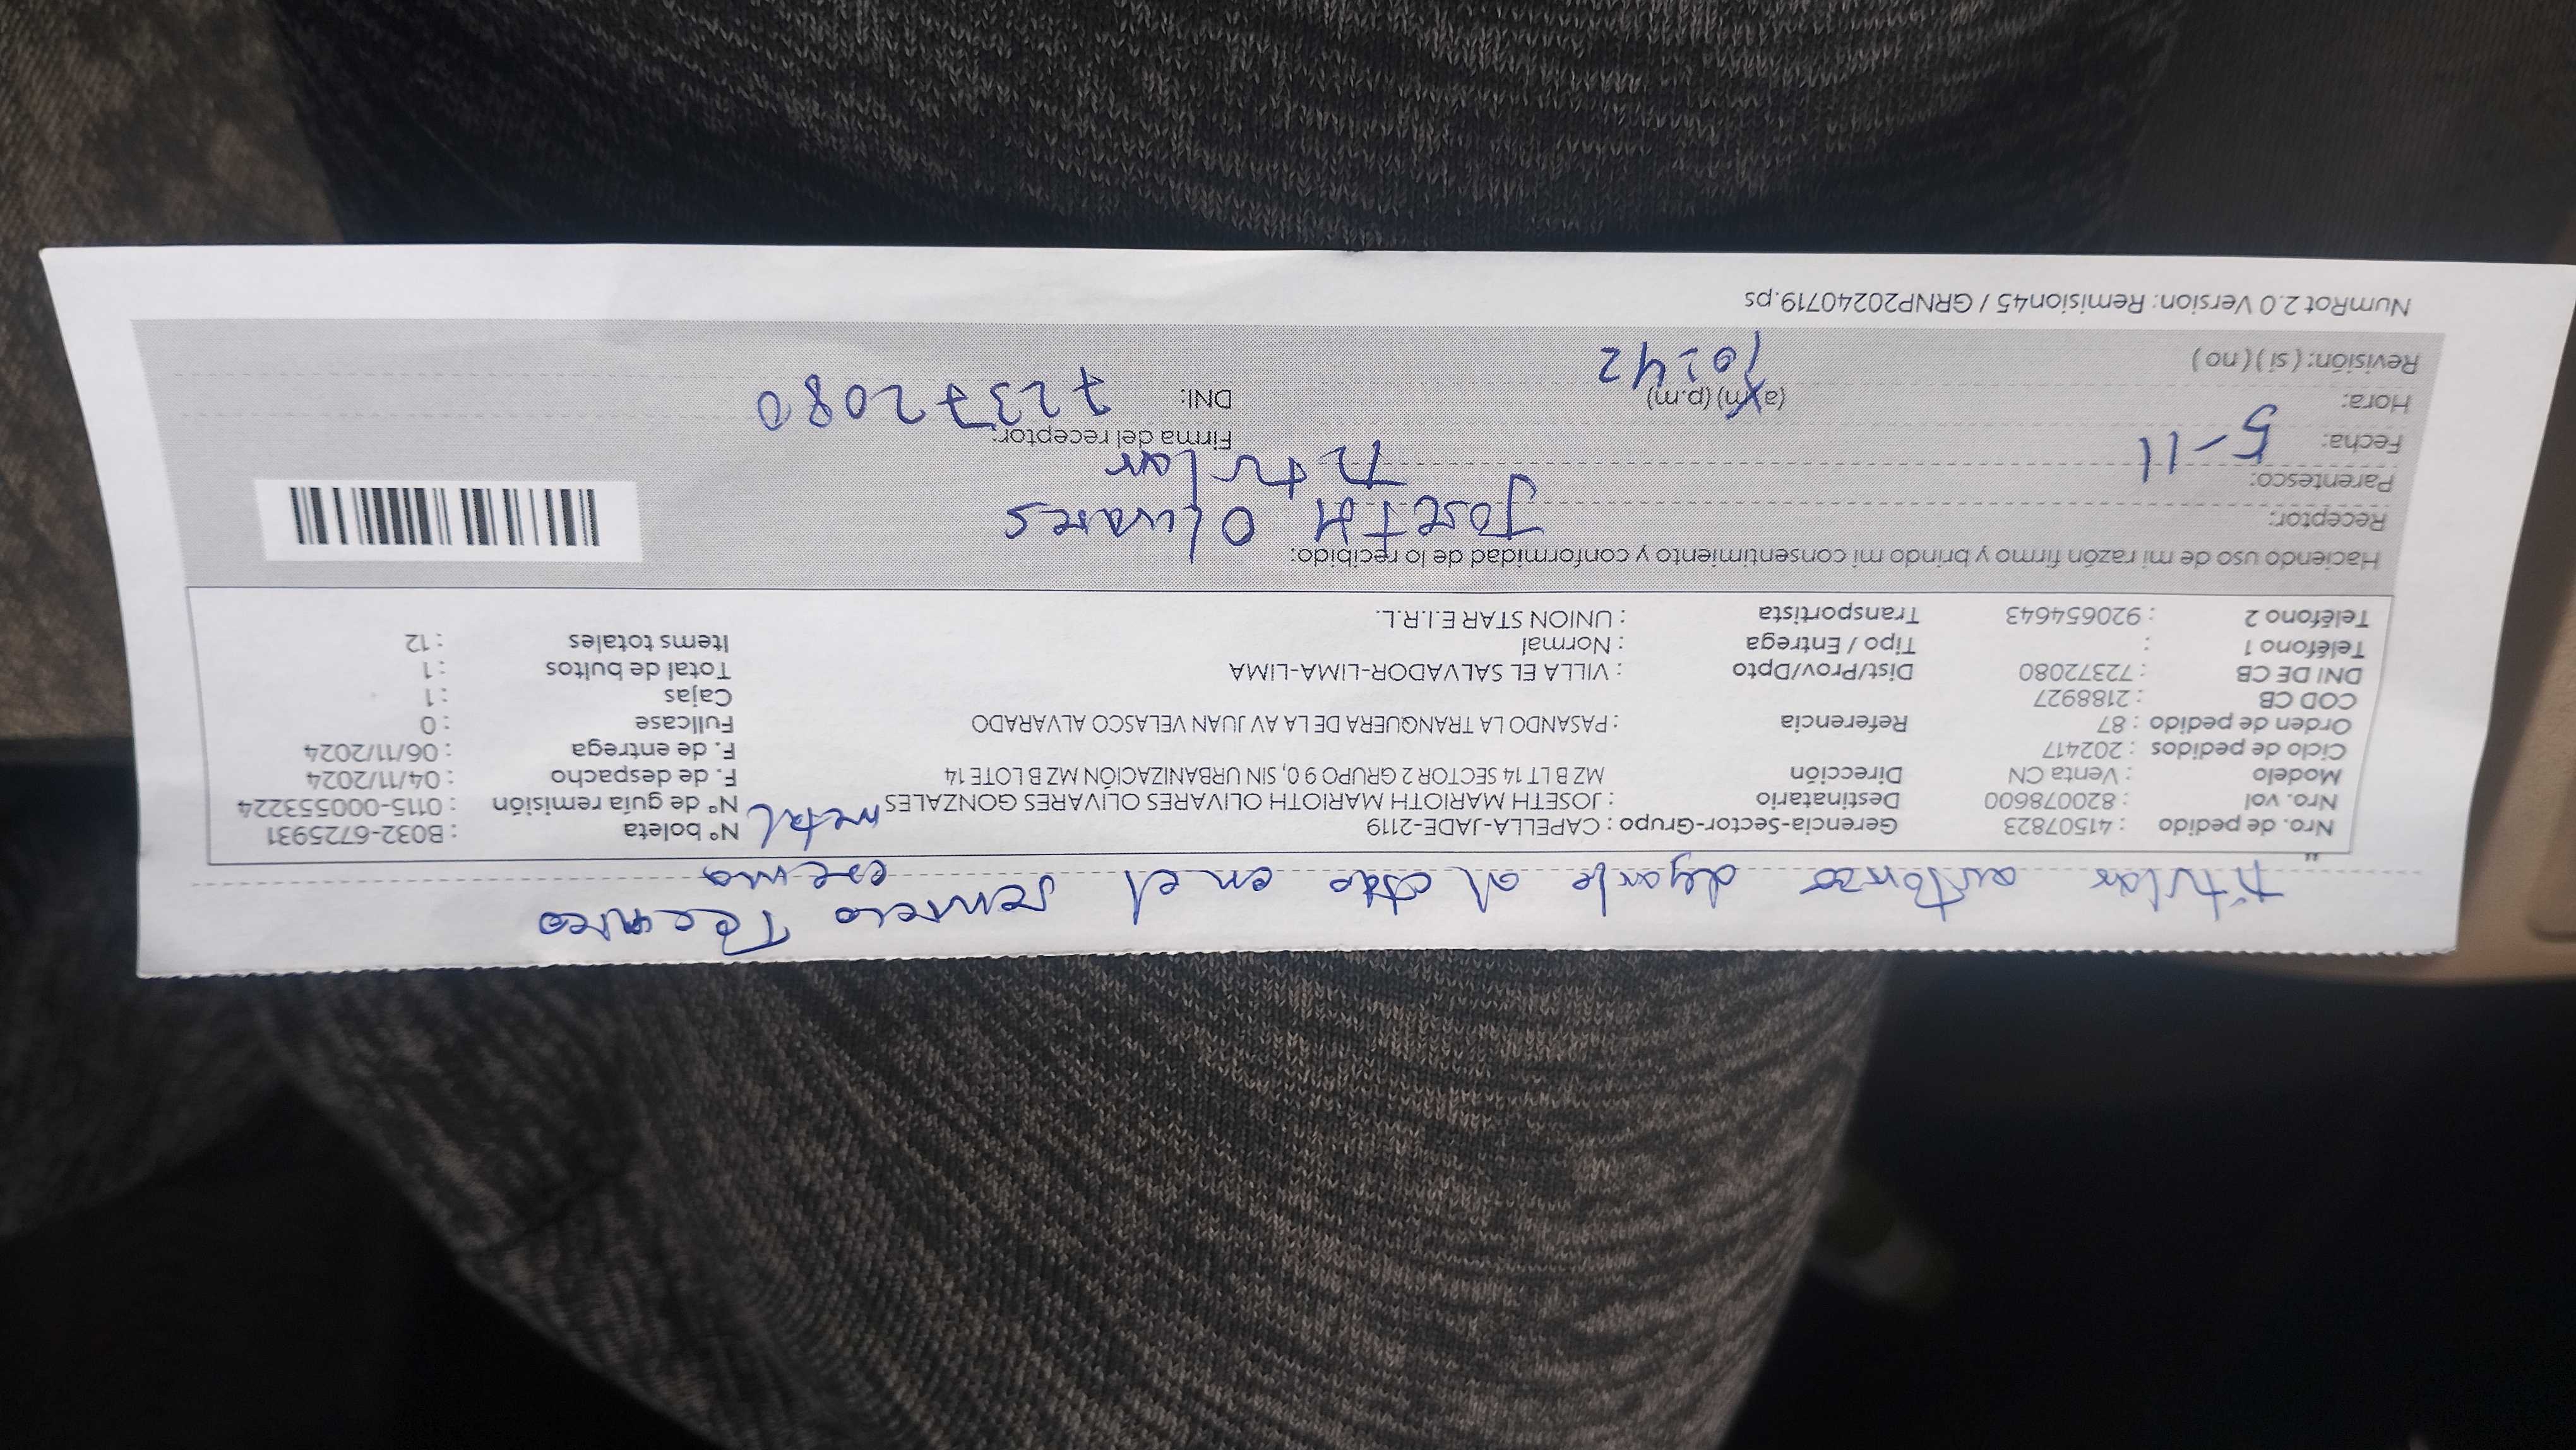 titular autorizo dejarle al estado en el servicio Tecnico
esquina metal
Nro. de pedido : 41507823 Gerencia-Sector-Grupo : CAPELLA-JADE-2119 N° boleta : B032-6725931
Nro. vol : 820078600 Destinatario : JOSETH MARIOTH MARIOTH OLIVARES OLIVARES GONZALES N° de guía remisión : 0115-000553224
Modelo : Venta CN Dirección MZ B LT 14 SECTOR 2 GRUPO 9 0, SIN URBANIZACIÓN MZ B LOTE 14 F. de despacho : 04/11/2024
Ciclo de pedidos : 202417 F. de entrega : 06/11/2024
Orden de pedido : 87 Referencia : PASANDO LA TRANQUERA DE LA AV JUAN VELASCO ALVARADO Fullcase : 0
COD CB : 2188927 Cajas : 1
DNI DE CB : 72372080 Dist/Prov/Dpto : VILLA EL SALVADOR-LIMA-LIMA Total de bultos : 1
Teléfono 1 : Tipo / Entrega : Normal Items totales : 12
Teléfono 2 : 920654643 Transportista : UNION STAR E.I.R.L.
Haciendo uso de mi razón firmo y brindo mi consentimiento y conformidad de lo recibido:
Receptor: Joseth Olivares
Parentesco: titular
Fecha: 5-11 Firma del receptor:
Hora: (a.m) (p.m) 10:42 DNI: 72372080
Revisión: ( si ) ( no )
NumRot 2.0 Version: Remision45 / GRNP20240719.ps